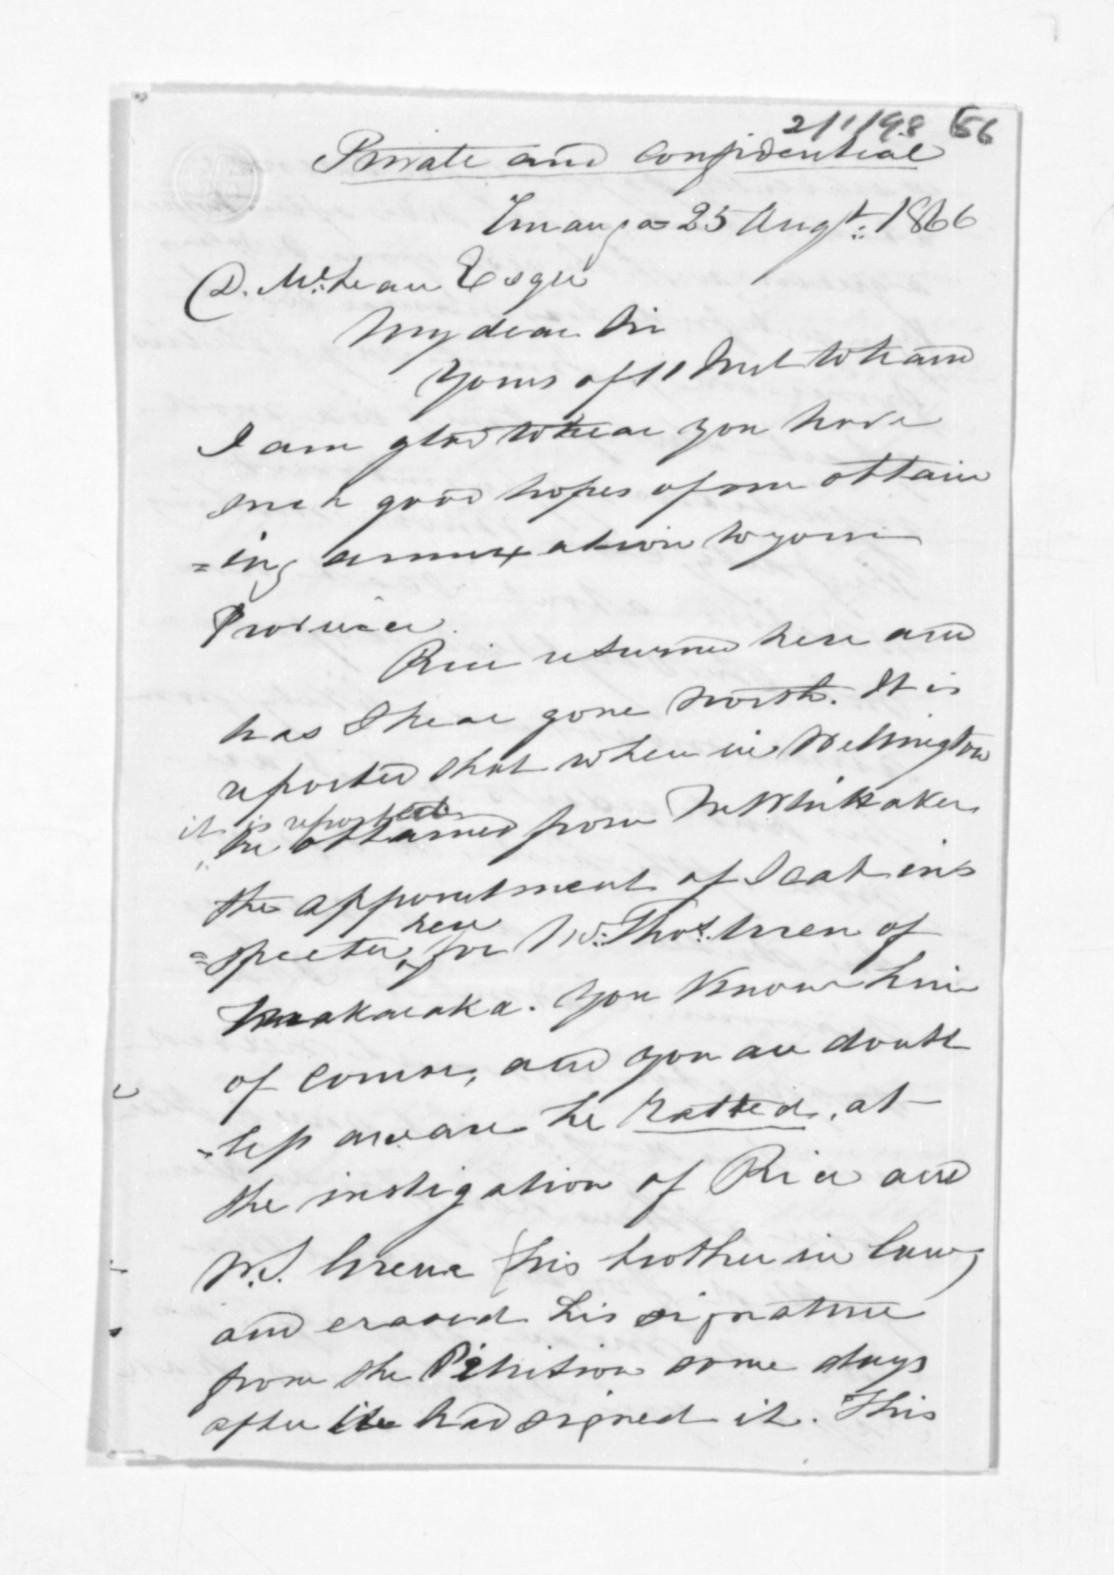 2/1/98 56
Private and confidential
Turanga 25 Augt. 1866
D. McLean Esqre
My dear Sir
Yours of 11 Inst to hand
I am glad to hear you have
such good hopes of our obtain
=ing annexation to your
Province.
Rice returned here and
has I hear gone North. It is
reported that when in Wellington
it is reported
he obtained from Mr Whittaker
the appointment of Scab ins
=pector here for Mr. Thos. Uren of
Makaraka. You know him
of course, and you are doubt
-less aware he ratted, at
the instigation of Rice and
W.S. Greene (his brother in law)
and erased his signature
from the Petition some days
after he had signed it. This